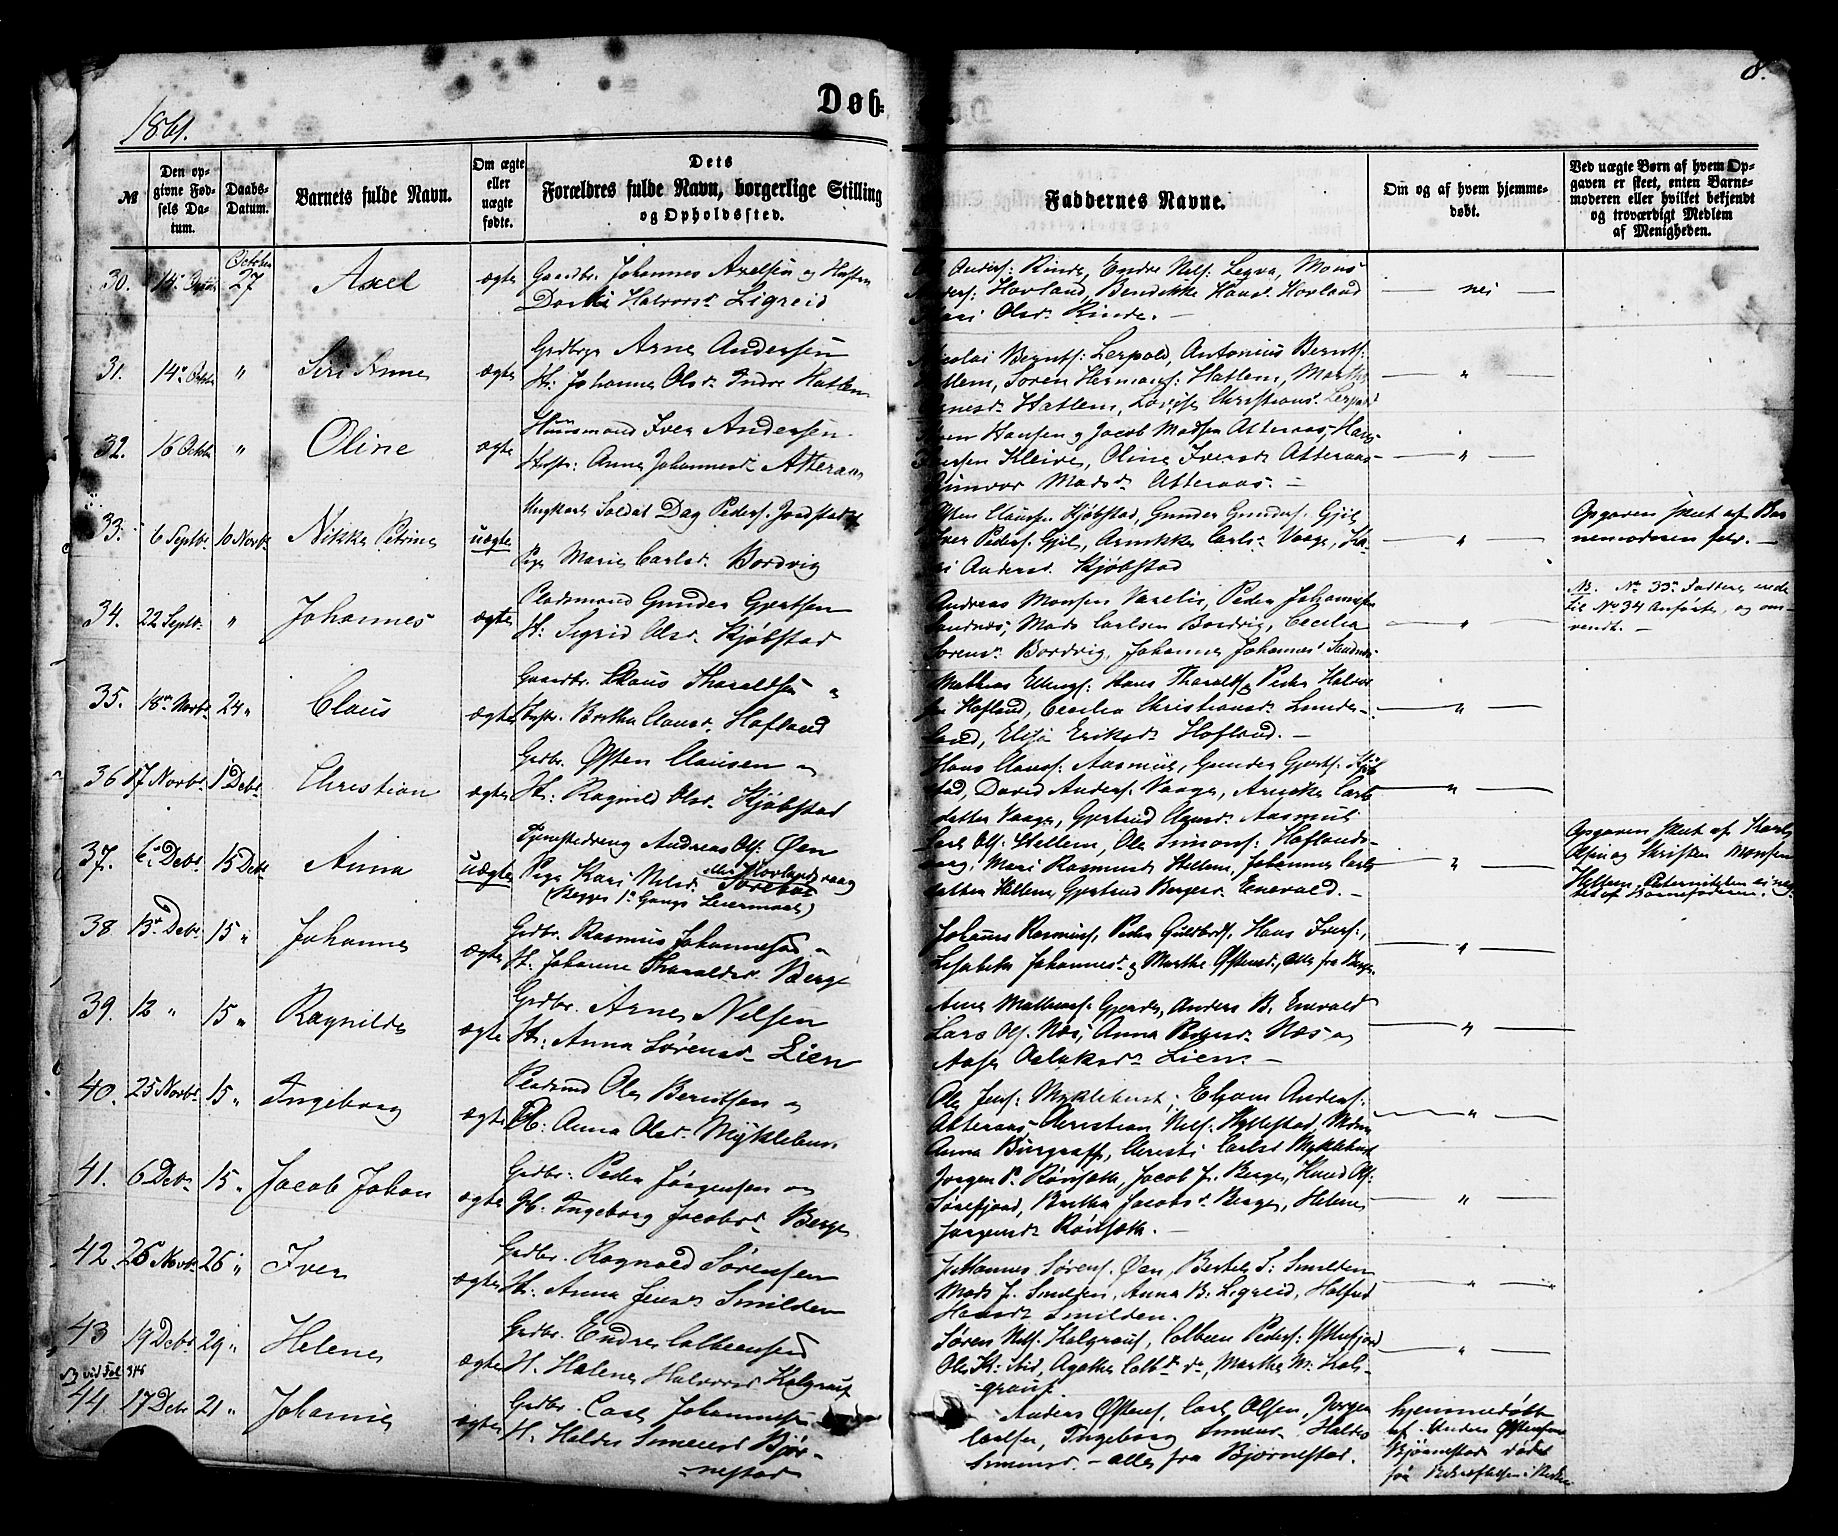 1861.
Døb-
8.
№
Den op-
givne Fød-
sels Da-
tum.
Daabs-
Datum.
Barnets fulde Navn.
Om ægte
eller
uægte
fødte.
Dets
Forældres fulde Navn, borgerlige Stilling
og Opholdssted.
Faddernes Navne.
Om og af hvem hjemme-
døbt.
Ved uægte Børn af hvem Op-
gaven er skeet, enten Barne-
moderen eller hvilket bekjendt
og troværdigt Medlem
af Menigheden.
30. 14. October 27 Axel ægte Gaardbr. Johannes Axelsen og Hustru
Halvorsd. Ligreid
Anders: Rinde, Endre Nils: Legva, Mons
Hovland, Bendikke Hansd. Hovland
Olsd. Rinde. —
— nei —
31. 14. Octbr " Siri Anne ægte Grdbrgr Arne Andersen
H: Johanne Olsd. Indre Hatlem
Bernts: Lerpold, Antonius Bernts:
Hatlem, Søren Hermans: Hatlem, Marthe
Hatlem, Lovise Christians. Lerpold
— " —
32. 16 Octbr " Oline ægte Huusmand Iver Andersen
Hustr: Anne Johannesd. Atteraas
Hansen og Jacob Madsen Atteraas, Hans
Kleive, Oline Iversd. Atteraas
Gunvor Madsd. Atteraas. —
— " —
33. 6 Septbr. 10 Novbr. Nikka Petrine uægte Ungkarl Soldat Dag Peders. Jordstad
Pige Marie Carlsd. Bordvig
Østen Clausen Kjøbstad, Gunder Gunders. Gjil
Iver Peders. Gjil, Annikke Carlsd. Vaage, Ka-
ri Andersd. Kjøbstad
— " —
Opgaven skeet af Bar
nemoderen selv. —
34. 22 Septbr. " Johannes ægte Pladsmand Gunder Gjertsen
H: Sigrid Olsd. Kjøbstad
Andreas Monsen Værlis, Peder Johannsen
Sandnæs, Mads Carlsen Bordvig, Cecilia
Sørensd. Bordvig, Johanne Johannesd. Sandnæs
— " —
N. No 33s Faddere ende
til No 34 anførte, og om
vendt. —
35. 18de Novbr. 24 " Claus ægte Gaardbr. Claus Tharaldsen og
Hustr. Britha Clausd. Hofland
Mathias Ellings: Hans Tharalds. Peder Halvo
fra Hofland, Cecilia Christiansd. Lunde-
land, Elisa Eriksd. Hofland. —
— " —
36 17 Novbr. 1 Debr. Christian ægte Grdbr. Østen Clausen og
H: Ragnild Olsd. Kjøbstad
Hans Clauss: Aasmul, Gunder Gjerts: Kjøb
stad, David Anders: Vaage, Annikke Carls
datter Vaage, Gjertrud Aasmul
— " —
37. 6 Debr. 15 Debr Anna uægte Tjenestedreng Andreas Ols: Øen
Pige Kari Nilsd. Hovlandsvaag
(Begges 1ste Gangs Leiermaal)
Carl Ols: Hellem, Ole Simons: Hoflands-
vaag, Mari Rasmusd. Hellem, Johanne Carls
datter Hellem, Gjertrud Børgesd. Enevald. —
— " —
Opgaven skeet af Karl
Olsen og
Hellem,
38 13de Debr. 15 " Johanne ægte Grdbr. Rasmus Johannesen og
H. Johanne Tharaldsd. Berge
Johannes Rasmuss, Peder Guldbrds, Hans Ivers:,
Lisabeth Johannesd. og Marthe Østensd., alle fra Berge
— " —
39. 12 " 15 " Ragnilde ægte Grdbr. Arne Nilsen
H: Anna Sørensd. Lien
Arne Gjerde, Anders B. Enevald
Lars Ols. Næs, Anna Pedersd. Næs og
Aase Aslaksd. Lien. —
— " —
40. 25 Novbr. 15 " Ingeborg ægte Pladsmd Ole Berntsen og
H: Anna Olsd. Myklebust
Ole Jens: Myklebust, Anders:
Atteraas, Christian Nils. Hyllestad, Mdm
Anna Burgraff, Christi Carlsd Myklebust
— " —
41. 6 Debr 15 " Jacob Johan ægte Grdbr: Peder Jørgensen og
H. Ingeborg Jacobsd. Berge
Jørgen P. Rønseth, Jacob J. Berge, Knud Ols.
Sørefjord, Britha Jacobsd. Berge, Helene
Jørgensd. Rønseth. —
— " —
42. 26 Novbr. 26 " Iver ægte Grdbr. Ragnald Sørensen
H. Anna Jensd. Smilden
Johannes Sørens. Øen, Berthel S: Smilden
Mads J. Smilden, Anna B. Ligreid, Halfrid
Hansd. Smilden.
— " —
43 19 Debr. 29 " Helene ægte Grdbr. Endre Colbeensen
H. Helene Halvorsd. Kolgrauf
Søren Nils. Kolgrauf, Colbeen Peders: Østrefjord
Ole K: ibid, Agathe Colb.d. do, Marthe M. Kol-
grauf.
— " —
vid Fol 346
44 17 Debr 21 " Johanne ægte Grdbr. Carl Johannesen
H. Halde Simensd Bjør-
nestad
Anders Østens, Carl Olsen, Jørgen
Carlsen, Ingeborg Simensd. Halde
Simensd. — alle fra Bjørnestad.
hjemmedøbt
af Anders Østensen
Bjørnestad døde
før Bekræftelsen i Kirken